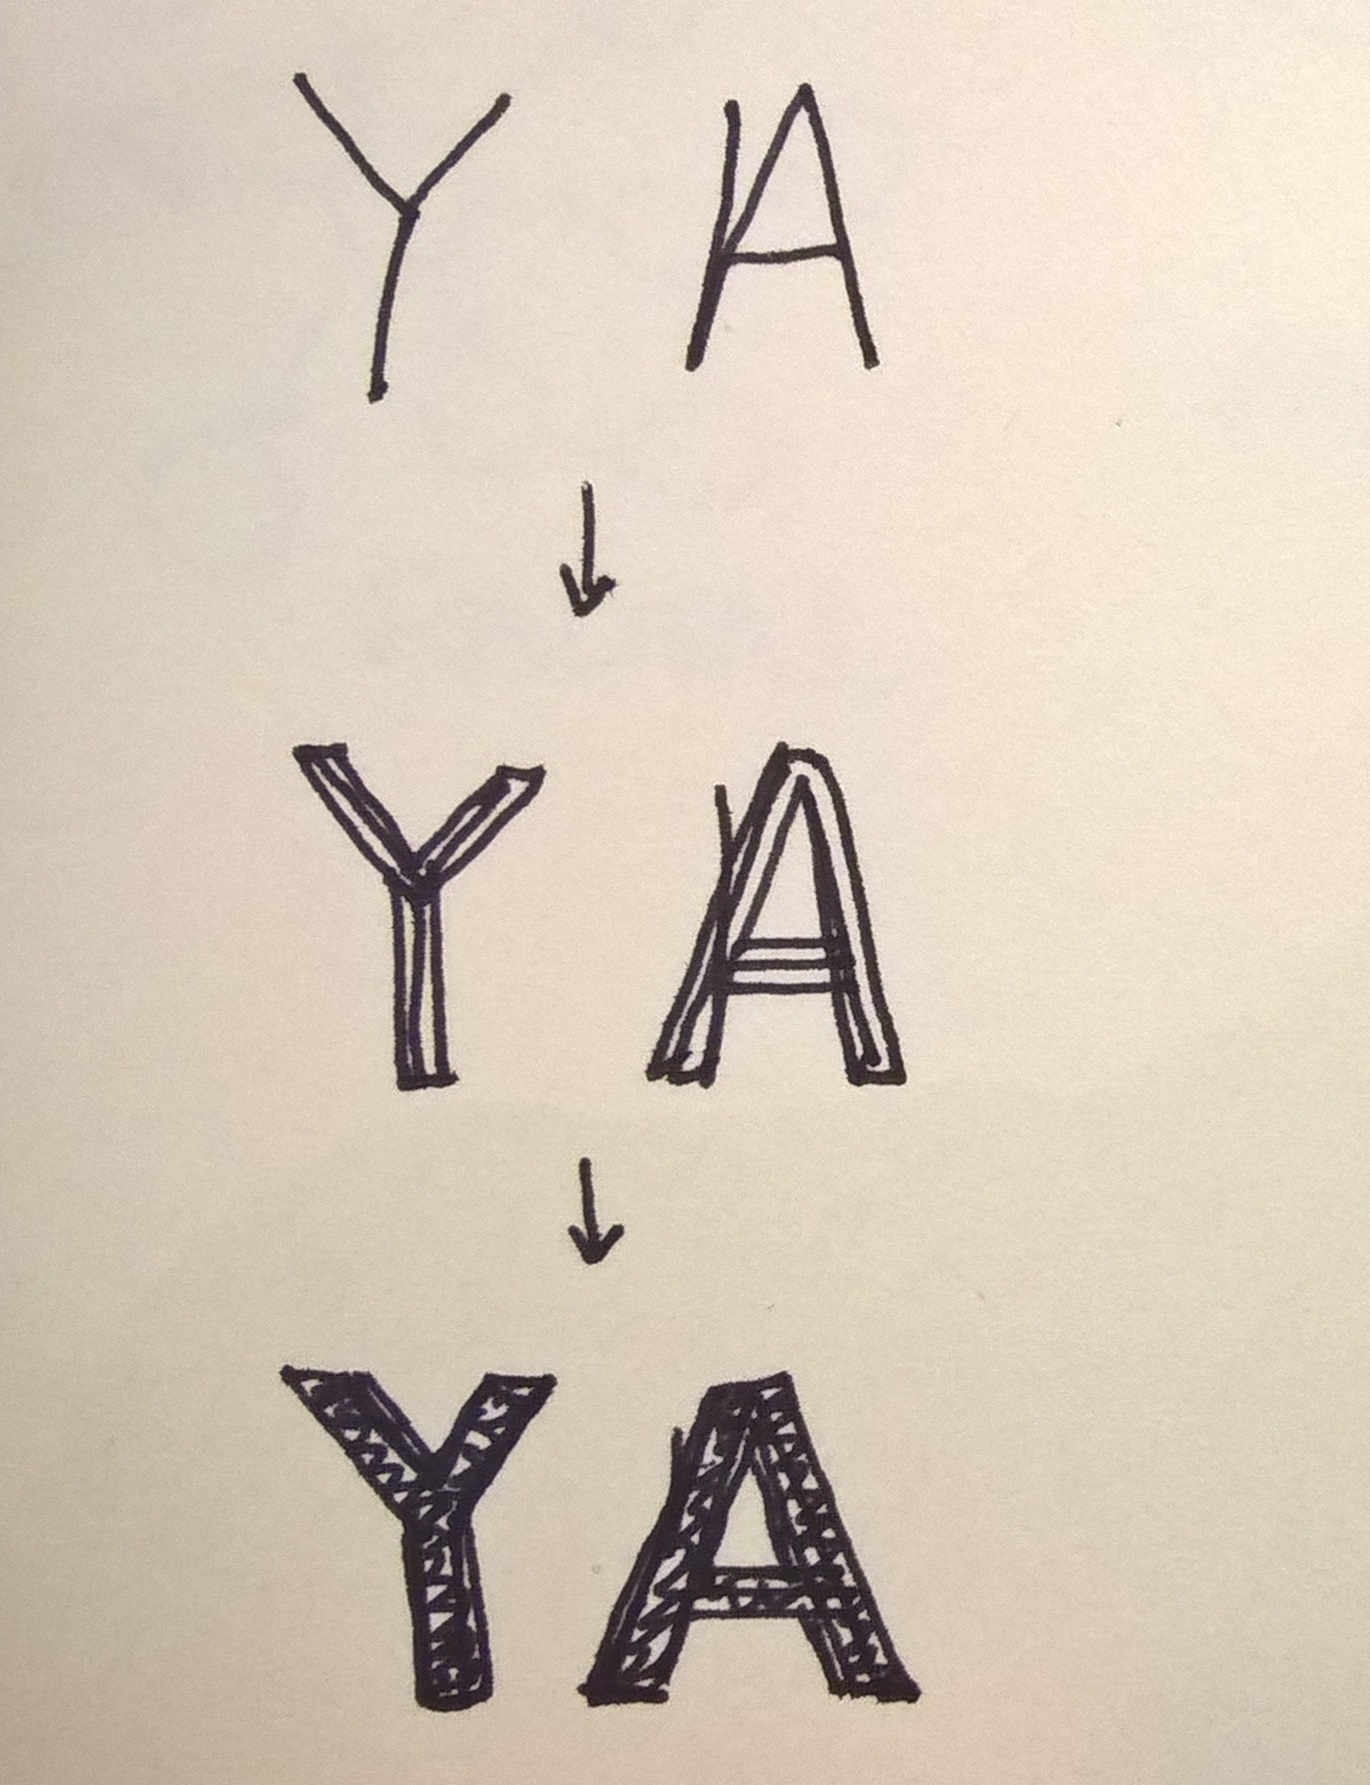 Y A
↓
Y A
↓
YA